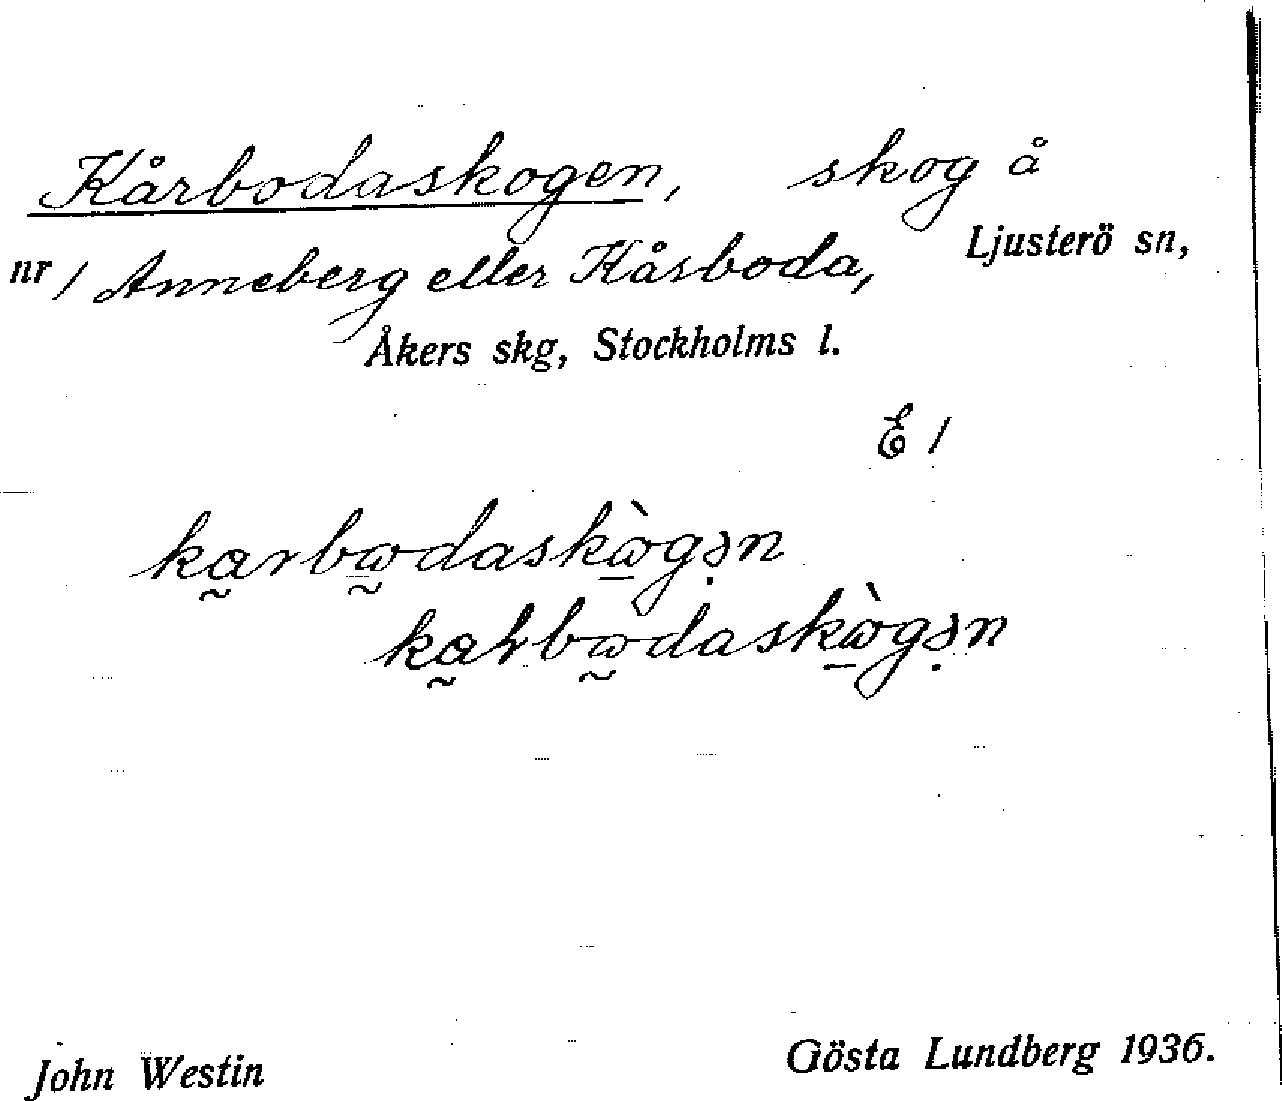 Kårbodaskogen, skog å
Ljusterö sn,
nr 1 Anneberg eller Kårboda,
Åkers skg, Stockholms l.
E 1
John Westin
Gösta Lundberg 1936.